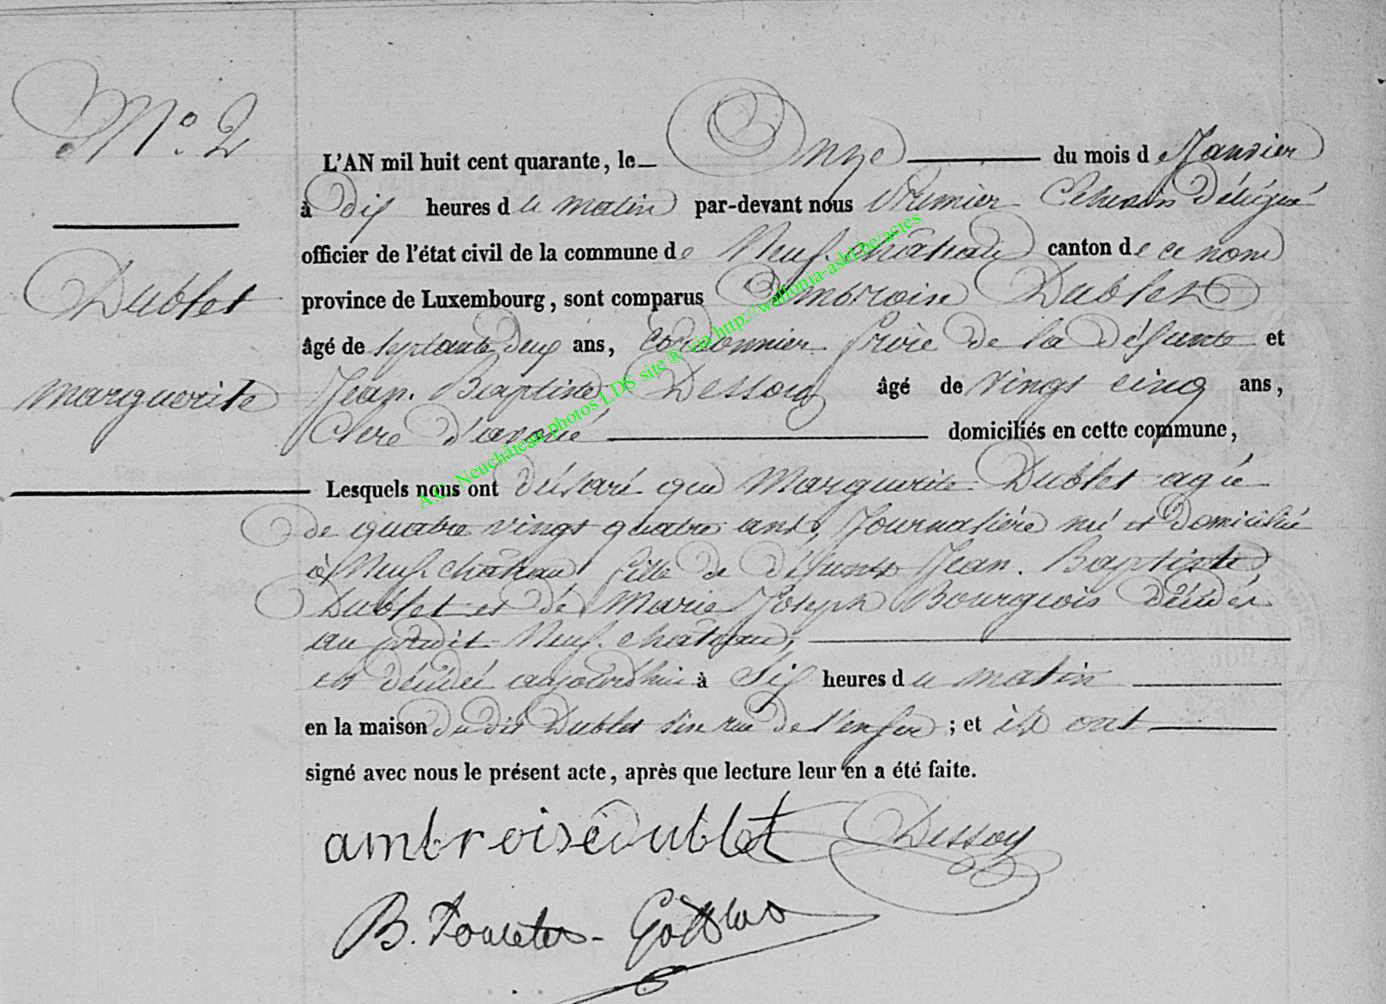 N.° 2
L'AN mil huit cent quarante, le Onze du mois d Janvier
à dix heures du matin par-devant nous Premier Echevin Délégué
officier de l'état civil de la commune de Neufchâteau canton de ce nom
Dublet
province de Luxembourg, sont comparus Ambroise Dublet
âgé de septante deux ans, Cordonnier frère de la défunte et
Marguerite
Jean. Baptiste Dessoy âgé de vingt cinq ans,
Clerc d'avoué domiciliés en cette commune,
Lesquels nous ont déclaré que Marguerite Dublet agée
de quatre vingt quatre ans, Journalière né et domiciliée
à Neufchâteau fille de défunts Jean. Baptiste
Dublet et de Marie Joseph Bourgeois décédés
au predit Neufchateau,
est décédée aujourdhui à six heures du matin
en la maison du dit Dublet sise rue de l'enfer ; et ils ont
signé avec nous le présent acte, après que lecture leur en a été faite.
ambroise dublet Dessoy
B.
A.C. Neuchâteau photos LDS site ® via http://wallonia-asbl.be/actes